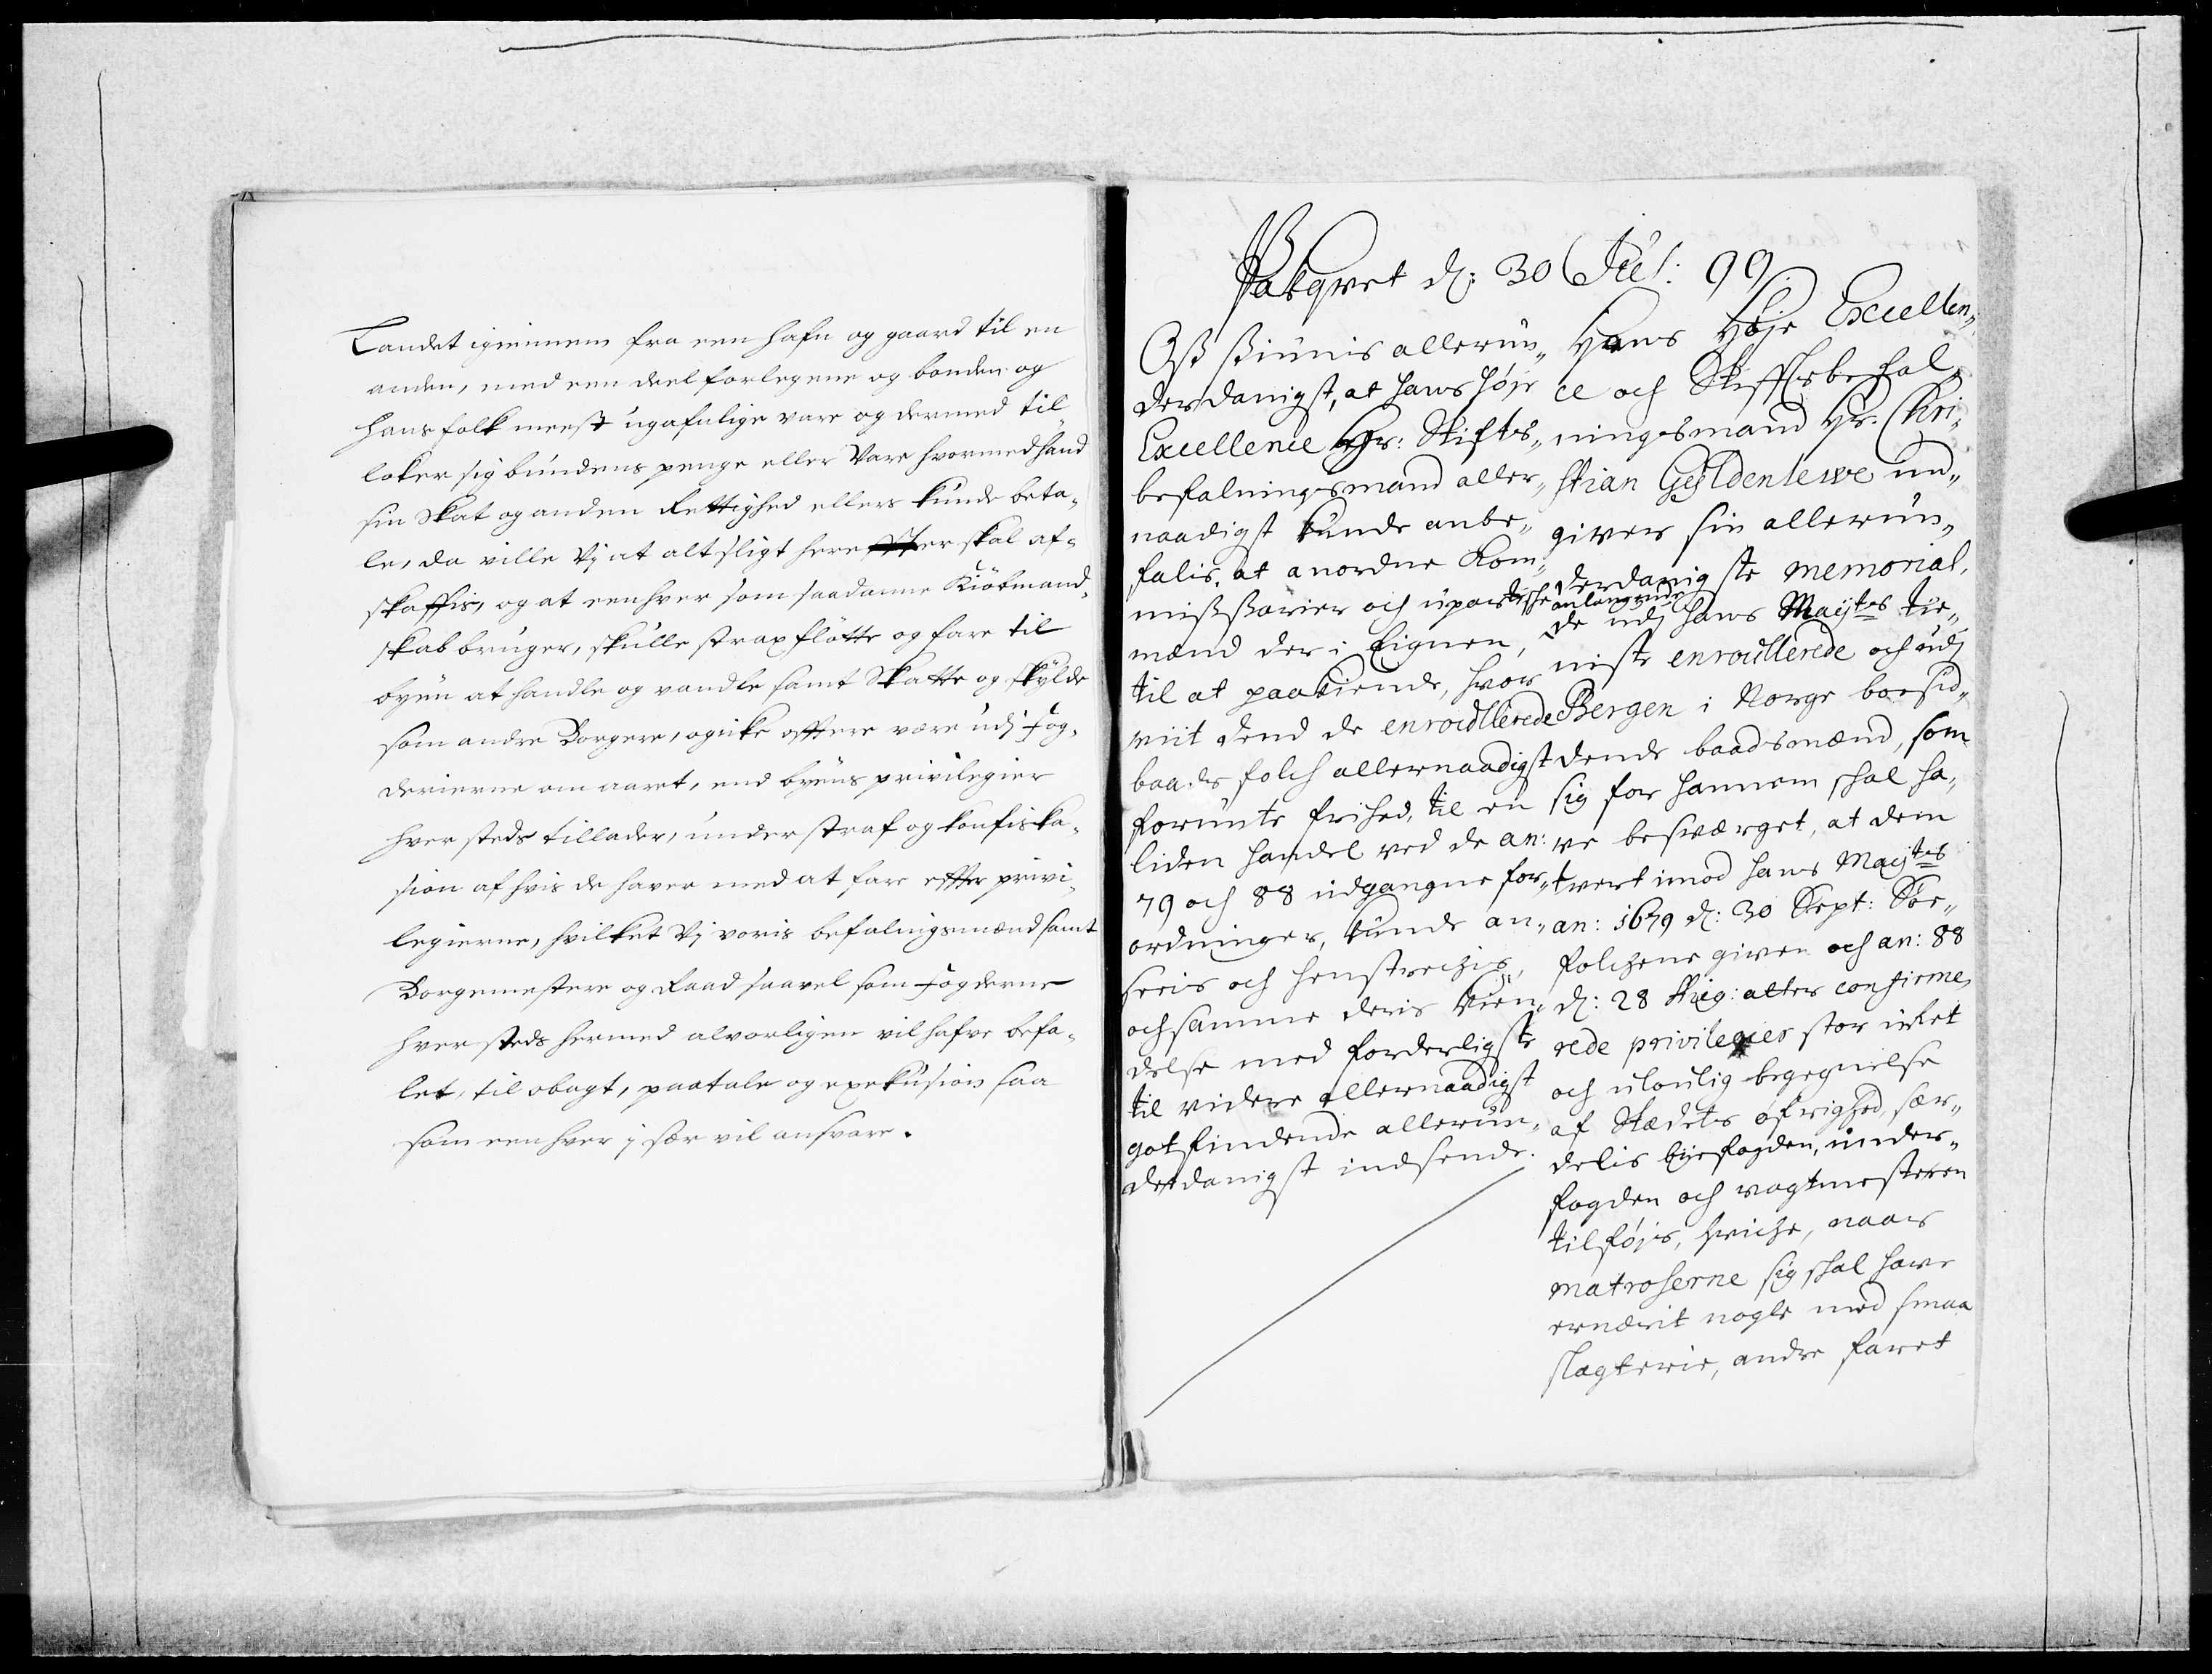 Landet igiennem fra een hafn og gaard til en
anden, med een deel forlegene og bonden og
hans folk meest ugafnlige vare og dermed til
loker sig bundens penge eller Vare hvormed hand
sin Skat og anden Rettighed ellers kunde beta-
le, da ville Vj at alt sligt herefter skal af-
skaffis, og at een hver som saadanne Kiöbmand-
skab bruger, skulle strax flötte og fare til
byen at handle og vandle samt Skatte og skylde
som andre Borgere, og icke oftere være udj Fog-
derierne om aaret, end byens privilegier
hver steds tillader, under straf og konfiska-
sion af hvis de haver med at fare efter privi-
legierne, hvilket Vj voris befalingsmænd samt
Borgemestere og Raad saavel som Fogderne
hver steds hermed alvorligen vil hafve befa-
let, til obagt, paatale og exekusion saa
som een hver j sær vil ansvare.
Pakqvet d: 30 Jul: 99
Oss siunis allerun-
derdanigst, at hans høje
Excellence Hr: Stifts-
befalningsmand aller-
naadigst kunde anbe-
falis, at anordne Kom-
missarier och upartische
mænd der i Eignen,
til at paakiende, hvor
viit dend de enroullerede
baads folch allernaadigst
forunte frihed, til en
liden handel ved de an:
79 och 88 udgangne for-
ordninger, kunde an-
sees och henstrechis,
och samme deris kien-
delse med forderligste
til videre allernaadigst
gotfindende allerun-
derdanigst indsende.
Hans Høje Excellen-
ce och Stifftsbefal-
ningsmand Hr. Chri-
stian Gyldenlewe un-
giver sin allerun-
derdanigste memorial,
anlangende
de udj hans Mayts tie-
niste enroullerede och udj
Bergen i Norge boesid-
dende baadsmænd, som
sig for hannem skal ha-
ve besværget, at dem
tvert imod hans Mayts
an: 1679 d: 30 Sept: Søe-
folchene given och an: 88
d: 28 Aug: atter confirme-
rede privilegier stor intet
och ulovlig begegnelse
af Stædets øfrighed, sær-
delis byefogden, under-
fogden och vagtmesteren
tilføjes, hviche, naar
matroserne sig skal have
ernærit nogle med smaa
slagterie, andre faret